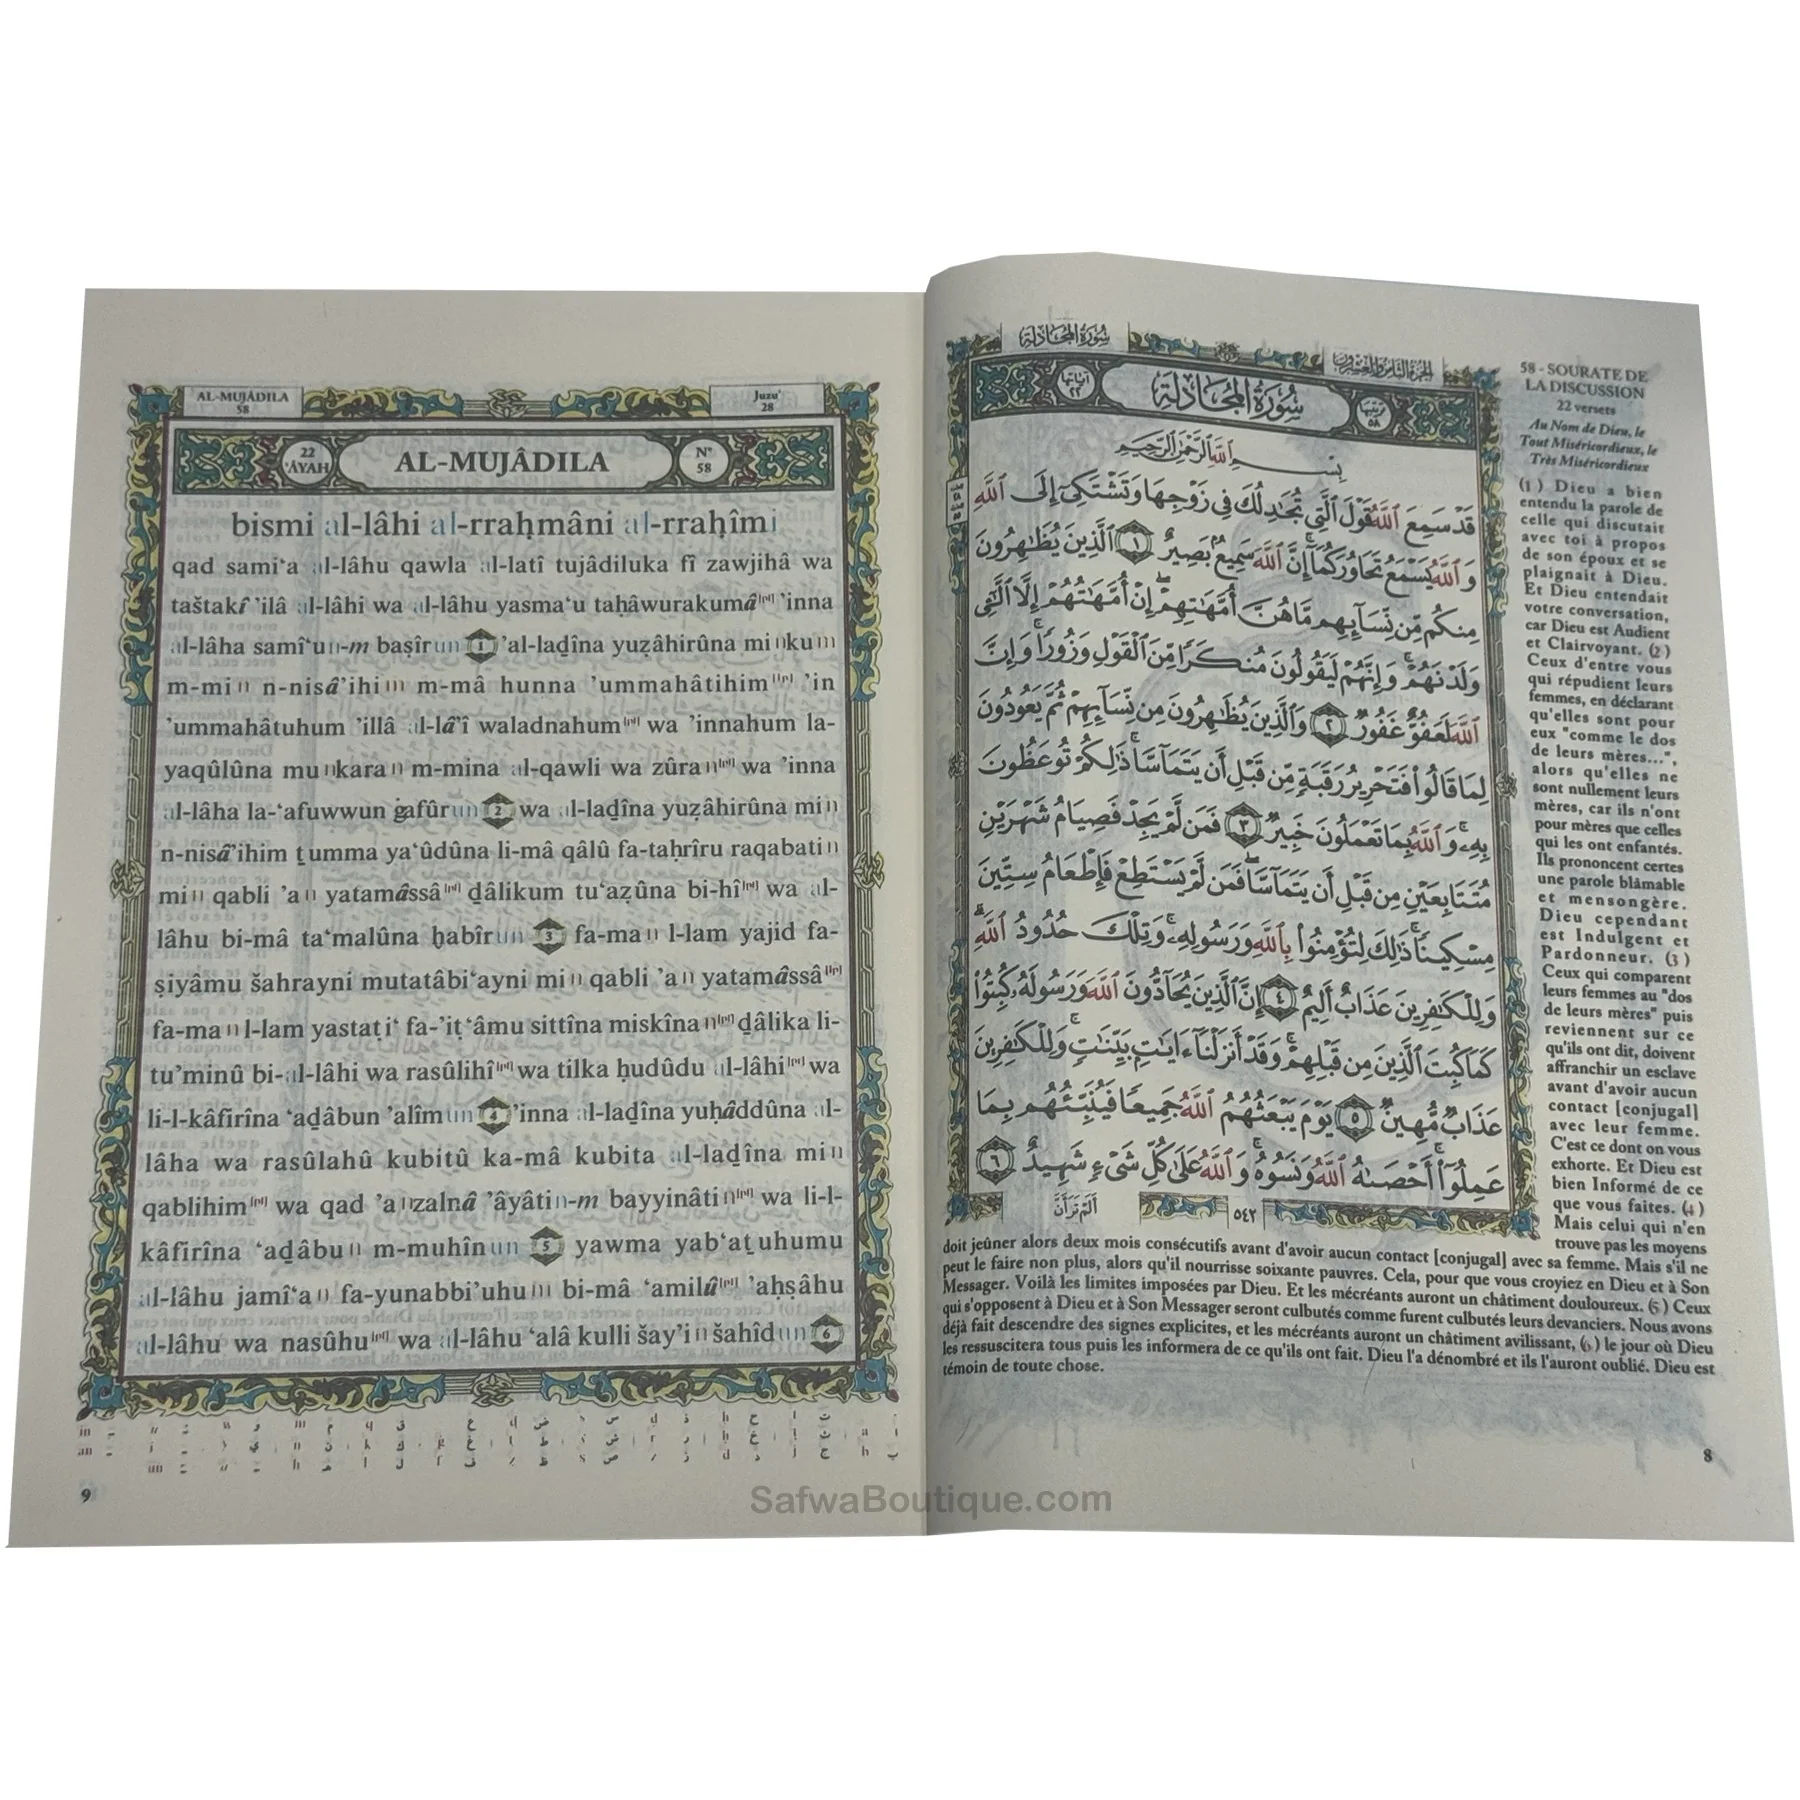 AL-MUJÂDILA
58
Juzu'
28
22
'ÂYAH
AL-MUJÂDILA
N°
58
bismi al-lâhi al-rraḥmâni al-rraḥîmi
qad sami‘a al-lâhu qawla al-latî tujâdiluka fî zawjihâ wa
taštakî ’ilâ al-lâhi wa al-lâhu yasma‘u taḥâwurakumâ[pr] ’inna
al-lâha samî‘un-m baṣîrun 1 ’al-laḏîna yuẓâhirûna minkum
m-min n-nisâ’ihim m-mâ hunna ’ummahâtihim[pr] ’in
’ummahâtuhum ’illâ al-lâ’î waladnahum[pr] wa ’innahum la-
yaqûlûna munkaran m-mina al-qawli wa zûran[pr] wa ’inna
al-lâha la-‘afuwwun ġafûrun 2 wa al-laḏîna yuẓâhirûna min
n-nisâ’ihim ṯumma ya‘ûdûna li-mâ qâlû fa-taḥrîru raqabatin
min qabli ’an yatamâssâ[pr] ḏâlikum tu‘aẓûna bi-hî[pr] wa al-
lâhu bi-mâ ta‘malûna ḫabîrun 3 fa-man l-lam yajid fa-
ṣiyâmu šahrayni mutatâbi‘ayni min qabli ’an yatamâssâ[pr]
fa-man l-lam yastaṭi‘ fa-’iṭ‘âmu sittîna miskînan[pr] ḏâlika li-
tu’minû bi-al-lâhi wa rasûlihî[pr] wa tilka ḥudûdu al-lâhi[pr] wa
li-l-kâfirîna ‘aḏâbun ’alîmun 4 ’inna al-laḏîna yuḥâddûna al-
lâha wa rasûlahû kubitû ka-mâ kubita al-laḏîna min
qablihim[pr] wa qad ’anzalnâ ’âyâtin-m bayyinâtin[pr] wa li-l-
kâfirîna ‘aḏâbun m-muhînun 5 yawma yab‘aṯuhumu
al-lâhu jamî‘an fa-yunabbi’uhum bi-mâ ‘amilû[pr] ’aḥṣâhu
al-lâhu wa nasûhu[pr] wa al-lâhu ‘alâ kulli šay’in šahîdun 6
9
SafwaBoutique.com
سُورَةُ المُجَادلة
الجُزءُ الثَّامِنُ وَالعِشرُونَ
آياتها
٢٢
سُورَةُ المُجَادلة
ترتيبها
٥٨
بِسْمِ اللَّهِ الرَّحْمَٰنِ الرَّحِيمِ
قَدْ سَمِعَ ٱللَّهُ قَوْلَ ٱلَّتِي تُجَٰدِلُكَ فِي زَوْجِهَا وَتَشْتَكِيٓ إِلَى ٱللَّهِ
وَٱللَّهُ يَسْمَعُ تَحَاوُرَكُمَآ ۚ إِنَّ ٱللَّهَ سَمِيعٌۢ بَصِيرٌ ١ ٱلَّذِينَ يُظَٰهِرُونَ
مِنكُم مِّن نِّسَآئِهِم مَّا هُنَّ أُمَّهَٰتِهِمْ ۖ إِنْ أُمَّهَٰتُهُمْ إِلَّا ٱلَّٰٓـِٔي
وَلَدْنَهُمْ ۚ وَإِنَّهُمْ لَيَقُولُونَ مُنكَرًا مِّنَ ٱلْقَوْلِ وَزُورًا ۚ وَإِنَّ
ٱللَّهَ لَعَفُوٌّ غَفُورٌ ٢ وَٱلَّذِينَ يُظَٰهِرُونَ مِن نِّسَآئِهِمْ ثُمَّ يَعُودُونَ
لِمَا قَالُوا۟ فَتَحْرِيرُ رَقَبَةٍ مِّن قَبْلِ أَن يَتَمَآسَّا ۚ ذَٰلِكُمْ تُوعَظُونَ
بِهِۦ ۚ وَٱللَّهُ بِمَا تَعْمَلُونَ خَبِيرٌ ٣ فَمَن لَّمْ يَجِدْ فَصِيَامُ شَهْرَيْنِ
مُتَتَابِعَيْنِ مِن قَبْلِ أَن يَتَمَآسَّا ۖ فَمَن لَّمْ يَسْتَطِعْ فَإِطْعَامُ سِتِّينَ
مِسْكِينًا ۚ ذَٰلِكَ لِتُؤْمِنُوا۟ بِٱللَّهِ وَرَسُولِهِۦ ۚ وَتِلْكَ حُدُودُ ٱللَّهِ ۗ
وَلِلْكَٰفِرِينَ عَذَابٌ أَلِيمٌ ٤ إِنَّ ٱلَّذِينَ يُحَآدُّونَ ٱللَّهَ وَرَسُولَهُۥ كُبِتُوا۟
كَمَا كُبِتَ ٱلَّذِينَ مِن قَبْلِهِمْ ۚ وَقَدْ أَنزَلْنَآ ءَايَٰتٍۭ بَيِّنَٰتٍ ۚ وَلِلْكَٰفِرِينَ
عَذَابٌ مُّهِينٌ ٥ يَوْمَ يَبْعَثُهُمُ ٱللَّهُ جَمِيعًا فَيُنَبِّئُهُم بِمَا
عَمِلُوٓا۟ ۚ أَحْصَىٰهُ ٱللَّهُ وَنَسُوهُ ۚ وَٱللَّهُ عَلَىٰ كُلِّ شَىْءٍ شَهِيدٌ ٦
أَلَمْ تَرَ أَنَّ
٥٤٢
58 - SOURATE DE
LA DISCUSSION
22 versets
Au Nom de Dieu, le
Tout Miséricordieux, le
Très Miséricordieux
(1) Dieu a bien
entendu la parole de
celle qui discutait
avec toi à propos
de son époux et se
plaignait à Dieu.
Et Dieu entendait
votre conversation,
car Dieu est Audient
et Clairvoyant. (2)
Ceux d'entre vous
qui répudient leurs
femmes, en déclarant
qu'elles sont pour
eux "comme le dos
de leurs mères...",
alors qu'elles ne
sont nullement leurs
mères, car ils n'ont
pour mères que celles
qui les ont enfantés.
Ils prononcent certes
une parole blâmable
et mensongère.
Dieu cependant
est Indulgent et
Pardonneur. (3)
Ceux qui comparent
leurs femmes au "dos
de leurs mères" puis
reviennent sur ce
qu'ils ont dit, doivent
affranchir un esclave
avant d'avoir aucun
contact [conjugal]
avec leur femme.
C'est ce dont on vous
exhorte. Et Dieu est
bien Informé de ce
que vous faites. (4)
Mais celui qui n'en
trouve pas les moyens
doit jeûner alors deux mois consécutifs avant d'avoir aucun contact [conjugal] avec sa femme. Mais s'il ne
peut le faire non plus, alors qu'il nourrisse soixante pauvres. Cela, pour que vous croyiez en Dieu et à Son
Messager. Voilà les limites imposées par Dieu. Et les mécréants auront un châtiment douloureux. (5) Ceux
qui s'opposent à Dieu et à Son Messager seront culbutés comme furent culbutés leurs devanciers. Nous avons
déjà fait descendre des signes explicites, et les mécréants auront un châtiment avilissant, (6) le jour où Dieu
les ressuscitera tous puis les informera de ce qu'ils ont fait. Dieu l'a dénombré et ils l'auront oublié. Dieu est
témoin de toute chose.
8